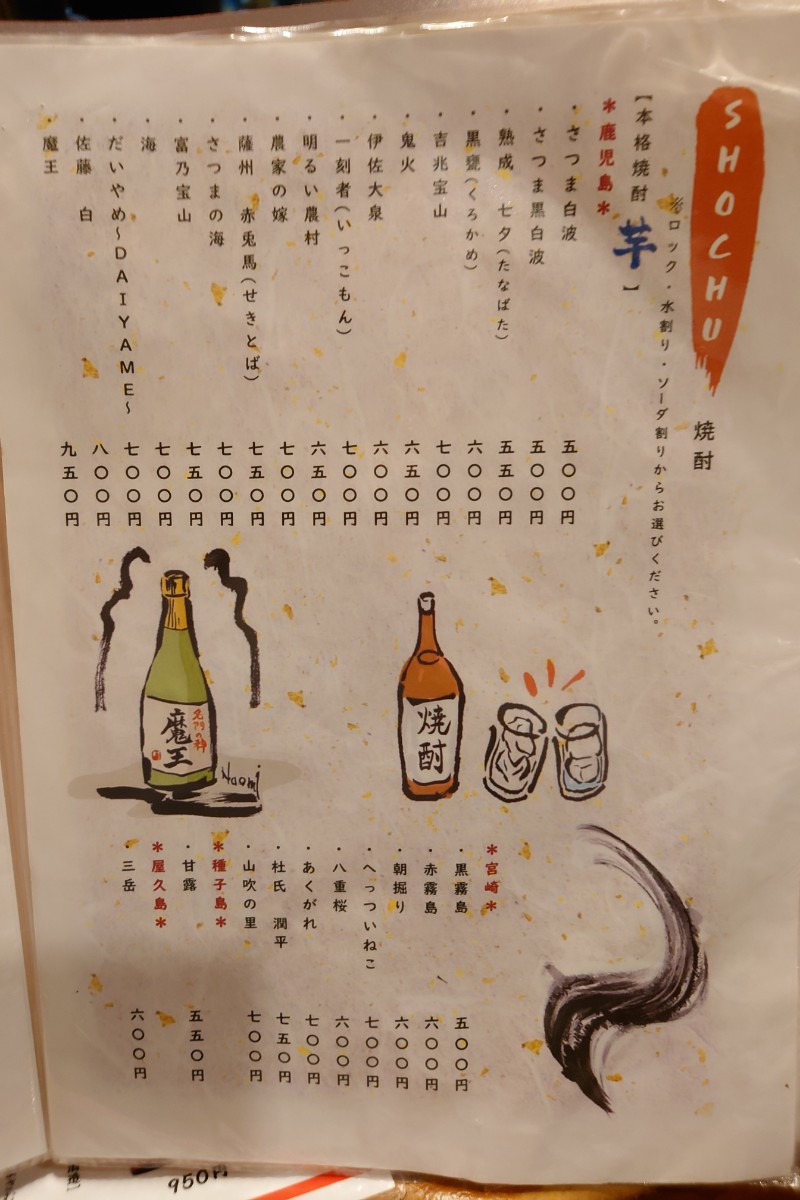 SHOCHU 焼酎
※ロック・水割り・ソーダ割りからお選びください。
【本格焼酎 芋】
＊鹿児島＊
・さつま白波 五〇〇円
・さつま黒白波 五〇〇円
・熟成 七夕(たなばた) 五五〇円
・黒甕(くろかめ) 六〇〇円
・吉兆宝山 七〇〇円
・鬼火 六五〇円
・伊佐大泉 六〇〇円
・一刻者(いっこもん) 七〇〇円
・明るい農村 六五〇円
・農家の嫁 七〇〇円
・薩州 赤兎馬(せきとば) 七五〇円
・さつまの海 七〇〇円
・富乃宝山 七五〇円
・海 七〇〇円
・だいやめ～DAIYAME～ 七〇〇円
・佐藤 白 八〇〇円
・魔王 九五〇円
焼酎
名門の粋
魔王
Naomi
＊宮崎＊
・黒霧島 五〇〇円
・赤霧島 六〇〇円
・朝掘り 六〇〇円
・へっついねこ 七〇〇円
・八重桜 六〇〇円
・あくがれ 七〇〇円
・杜氏 潤平 七五〇円
・山吹の里 七〇〇円
＊種子島＊
・甘露 五五〇円
＊屋久島＊
・三岳 六〇〇円
950円